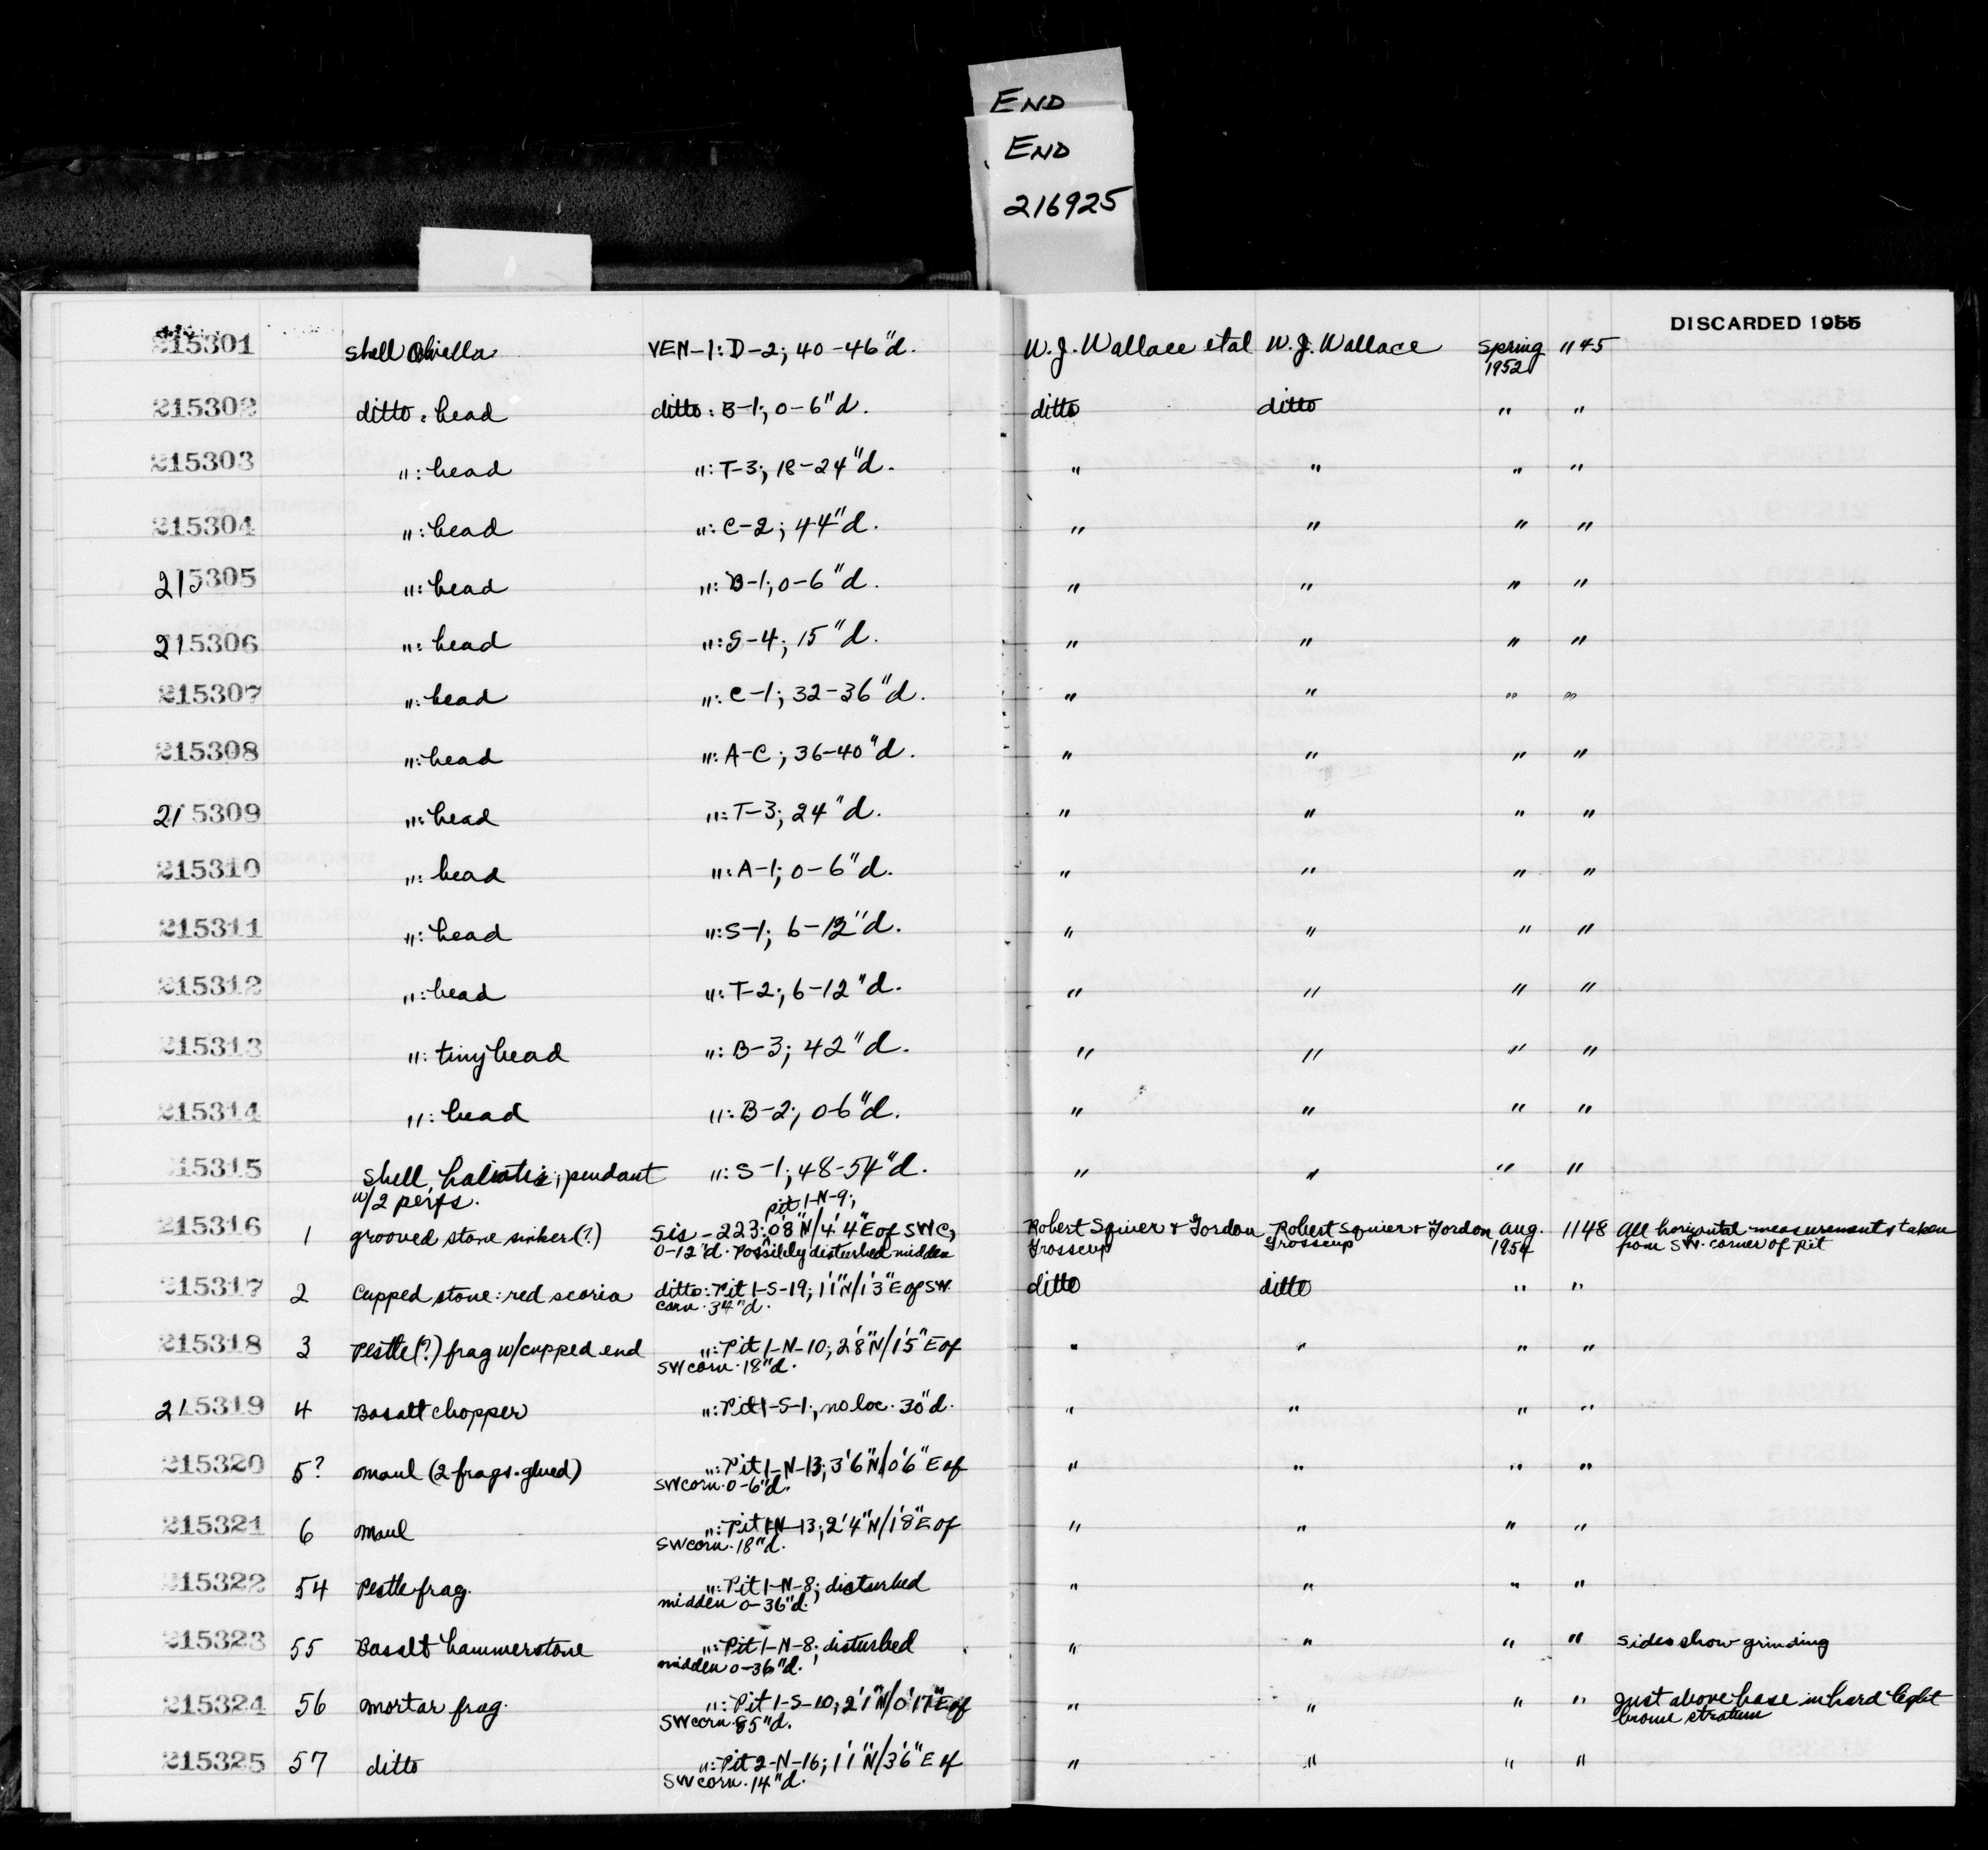 END
END
216925
DISCARDED 1955
215301 Shell Olivella VEN-1: D-2; 40-46"d. W. J. Wallace et al W. J. Wallace Spring 1145
1952
215302 ditto: bead ditto: B-1; 0-6"d. ditto ditto " "
215303 ": bead ": T-3; 18-24"d. " " " "
215304 ": bead ": C-2; 44"d. " " " "
215305 ": bead ": B-1; 0-6"d. " " " "
215306 ": bead ": S-4; 15"d. " " " "
215307 ": bead ": C-1; 32-36"d. " " " "
215308 ": bead ": A-C; 36-40"d. " " " "
215309 ": bead ": T-3; 24"d. " " " "
215310 ": bead ": A-1; 0-6"d. " " " "
215311 ": bead ": S-1; 6-12"d. " " " "
215312 ": bead ": T-2; 6-12"d. " " " "
215313 ": tiny bead ": B-3; 42"d. " " " "
215314 ": bead ": B-2; 0-6"d. " " " "
15315 Shell, haliotis; pendant ": S-1; 48-54"d. " " " "
w/2 perfs.
pit 1-N-9;
215316 1 grooved stone sinker(?) Sis-223: 0'8"N/4'4"E of SWC, Robert Squier + Gordon Robert Squier + Gordon Aug. 1148 All horizontal measurements taken
0-12"d. Possibly disturbed midden Grosscup Grosscup 1954 from SW. corner of pit
215317 2 Cupped stone: red scoria ditto: Pit 1-S-19; 1'1"N/1'3"E of SW ditto ditto " "
corn. 34"d.
215318 3 Pestle(?) frag w/cupped end ": Pit 1-N-10; 2'8"N/1'5"E of " " " "
SW corn. 18"d.
215319 4 Basalt chopper ": Pit 1-S-1; no loc. 30"d. " " " "
215320 5? Maul (2 frags. glued) ": Pit 1-N-13; 3'6"N/0'6"E of " " " "
SW corn. 0-6"d.
215321 6 Maul ": Pit 1-N-13; 2'4"N/1'8"E of " " " "
SW corn. 18"d.
215322 54 Pestle frag. ": Pit 1-N-8; disturbed " " " "
midden 0-36"d.
215323 55 Basalt hammerstone ": Pit 1-N-8; disturbed " " " " Sides show grinding
midden 0-36"d.
215324 56 Mortar frag. ": Pit 1-S-10; 2'1"N/0'17"E of " " " " Just above base in hard light
SW corn. 85"d. brown stratum
215325 57 ditto ": Pit 2-N-16; 1'1"N/3'6"E of " " " "
SW corn. 14"d.